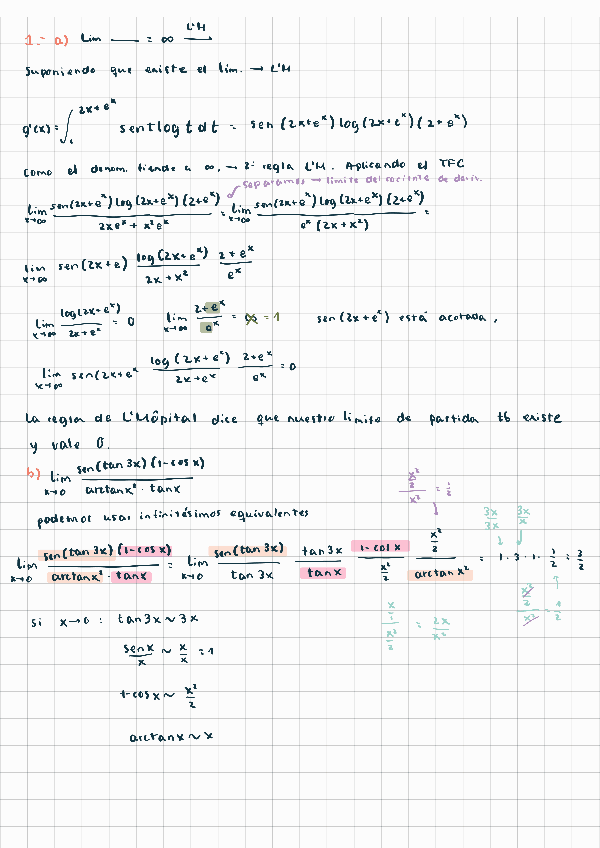 1.- a) Lim —— = ∞ L'H →
Suponiendo que existe el lim. → L'H
g'(x) = ∫₁^(2x+e^x) sent log t dt = sen (2x+e^x) log (2x+e^x) (2+e^x)
Como el denom. tiende a ∞, → 2ª regla L'H. Aplicando el TFC
separamos → límite del cociente de deriv.
lim x→∞ sen(2x+e^x) log (2x+e^x) (2+e^x) / 2xe^x + x²e^x = lim x→∞ sen(2x+e^x) log (2x+e^x) (2+e^x) / e^x (2x+x²) =
lim x→∞ sen (2x+e) log (2x+e^x) / 2x+x² 2+e^x / e^x
lim x→∞ log(2x+e^x) / 2x+e^x = 0 lim x→∞ 2+e^x / e^x = ∞ = 1 sen (2x+e^x) está acotada,
lim x→∞ sen (2x+e^x log (2x+e^x) / 2x+e^x 2+e^x / e^x = 0
La regla de L'Hôpital dice que nuestro límite de partida tb existe
y vale 0.
b) lim x→0 sen(tan 3x) (1-cos x) / arctanx² · tanx
podemos usar infinitésimos equivalentes
x²/2 / x² = 1/2
3x/3x 3x/x
lim x→0 sen(tan 3x) (1-cosx) / arctanx² · tanx = lim x→0 sen(tan 3x) / tan 3x tan3x / tanx 1-cosx / x²/2 x²/2 / arctan x² = 1·3·1· 1/2 = 3/2
x/1 / x²/2 = 2x/x²
x²/2 / x² = 1/2
si x→0 : tan3x ~ 3x
senx/x ~ x/x = 1
1-cosx ~ x²/2
arctanx ~ x